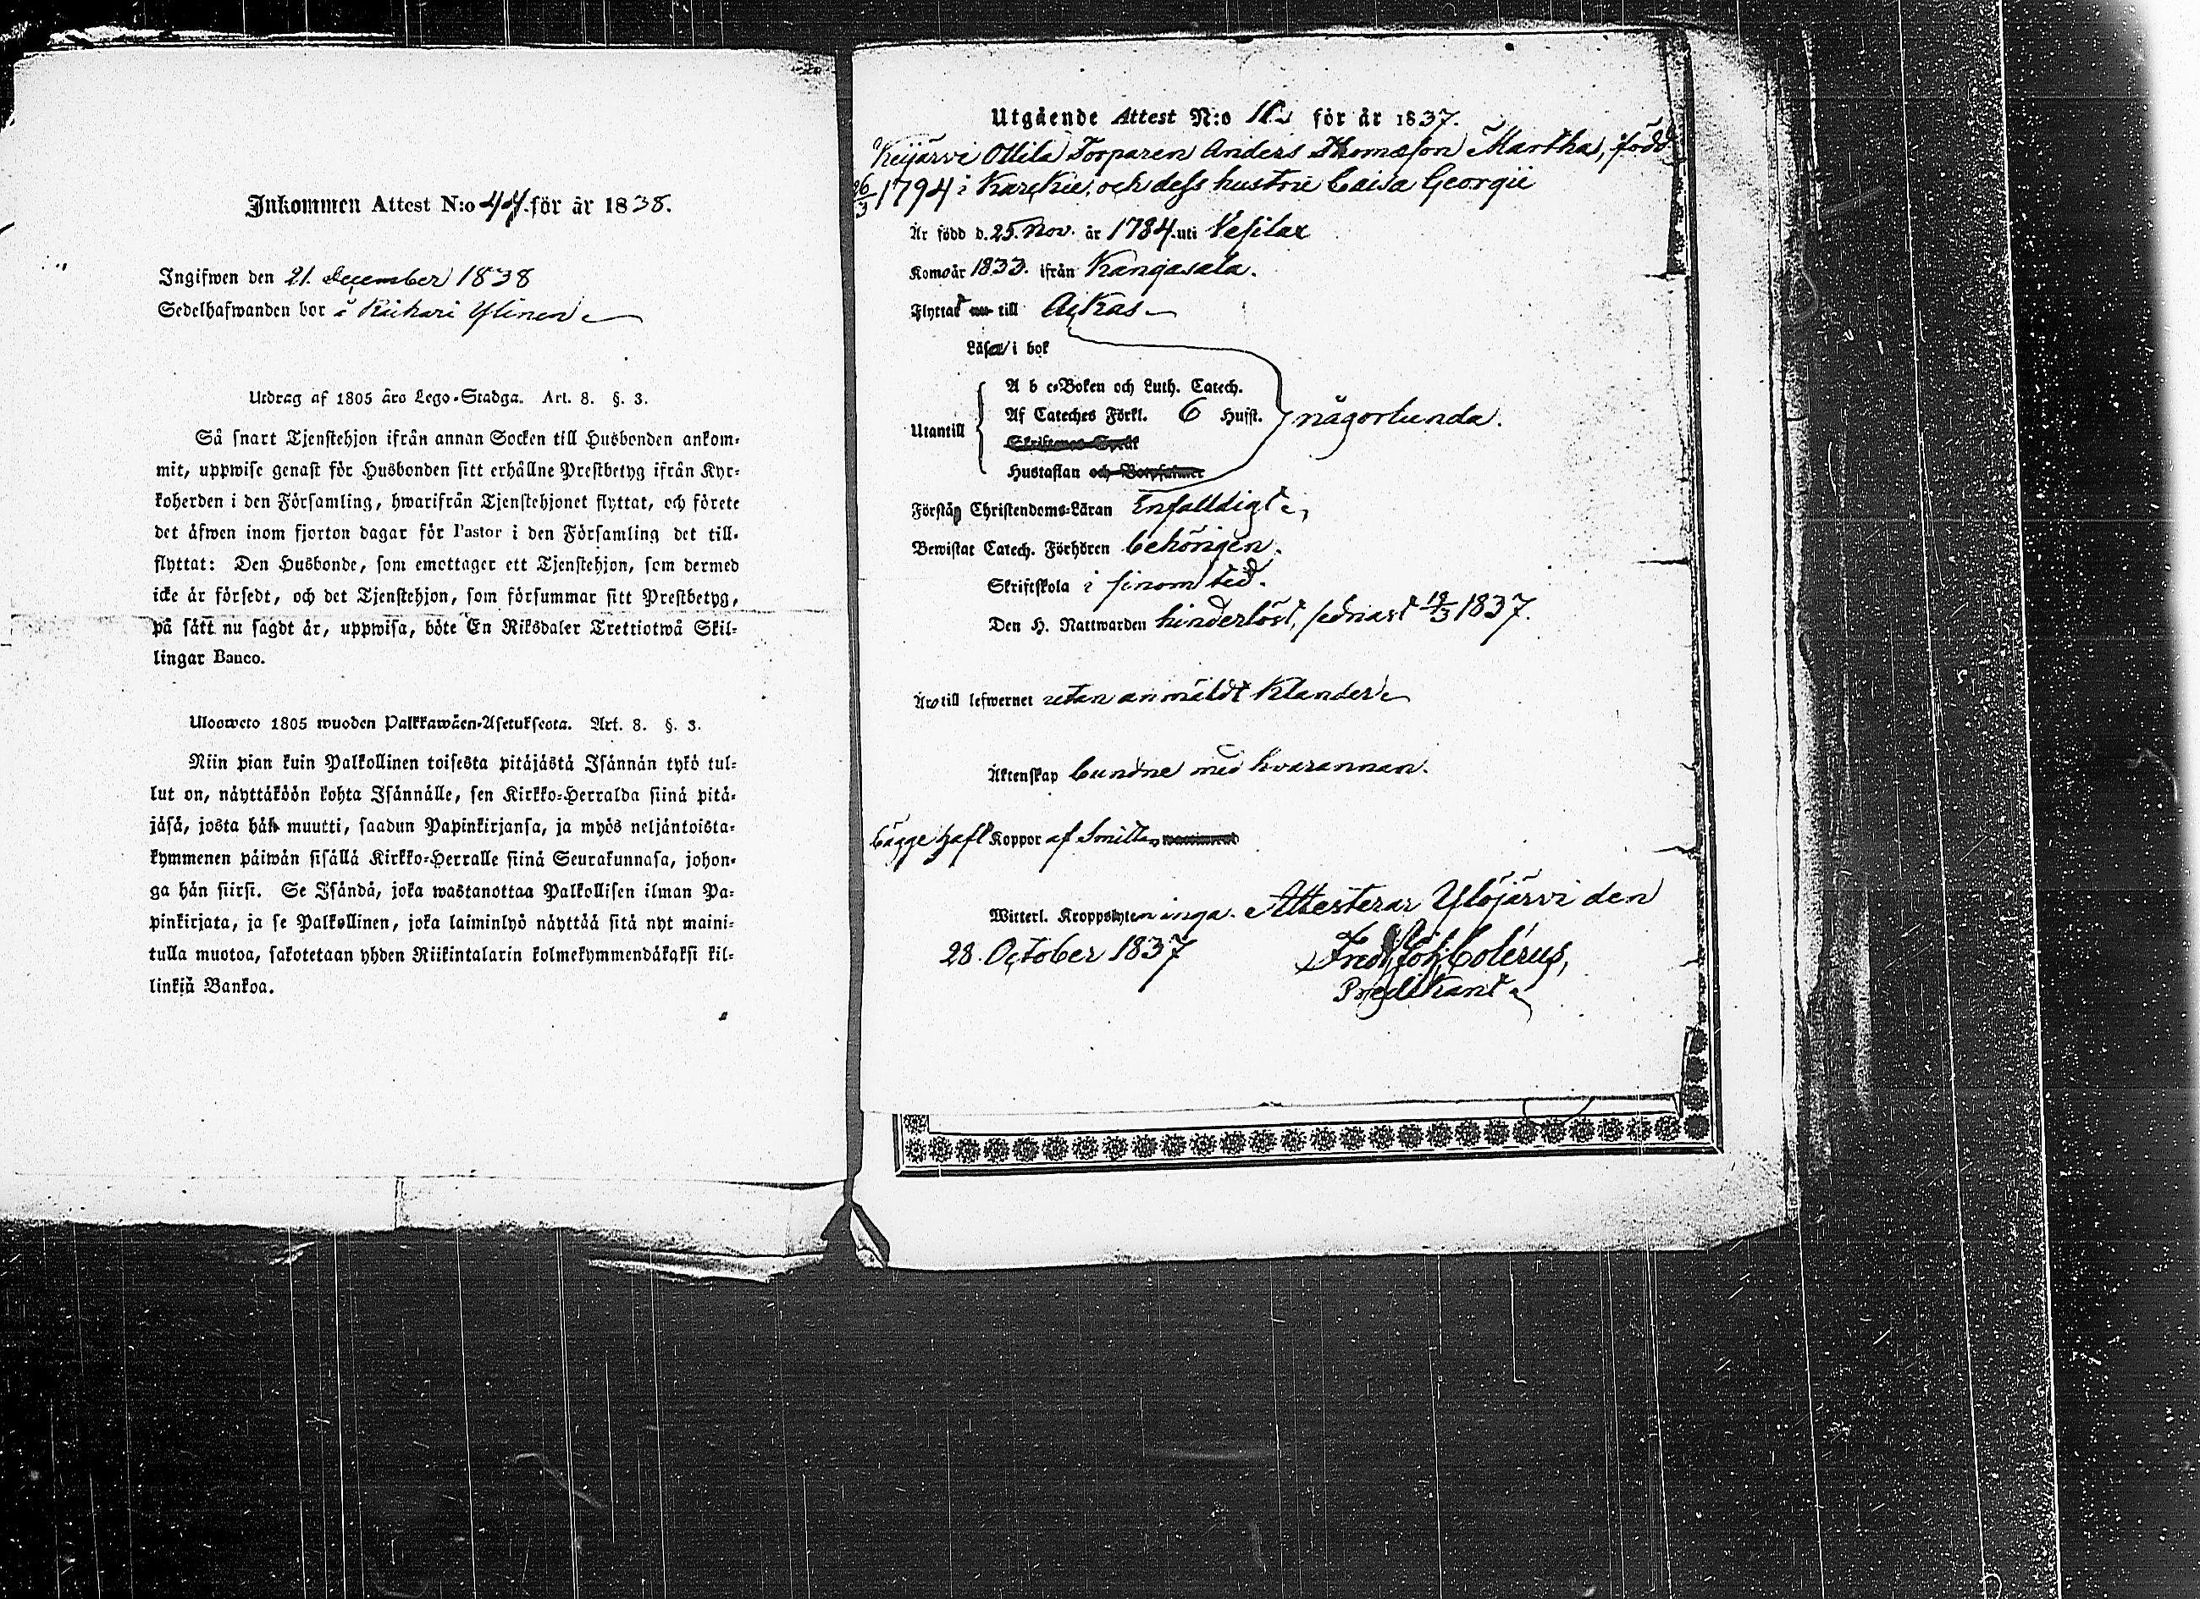 Inkommen Attest N:o 44. för år 1838.
Ingifwen den 21. December 1838
Sedelhafwanden bor å Kiikari Ylinen
Utdrag af 1805 års Lego-Stadga. Art. 8. §. 3.
Så snart Tjenstehjon ifrån annan Socken till Husbonden ankom-
mit, uppwise genast för Husbonden sitt erhållne Prestbetyg ifrån Kyr-
koherden i den Församling, hwarifrån Tjenstehjonet flyttat, och förete
det äfwen inom fjorton dagar för Pastor i den Församling det till-
flyttat: Den Husbonde, som emottager ett Tjenstehjon, som dermed
icke är försedt, och det Tjenstehjon, som försummar sitt Prestbetyg,
på sätt nu sagdt är, uppwisa, böte En Riksdaler Trettiotwå Skil-
lingar Banco.
Ulosweto 1805 wuoden Palkkawäen-Asetuksesta. Art. 8. §. 3.
Niin pian kuin Palkollinen toisesta pitäjästä Isännän tykö tul-
lut on, näyttäköön kohta Isännälle, sen Kirkko-Herralda siinä pitä-
jäsä, josta hän muutti, saadun Papinkirjansa, ja myös neljäntoista-
kymmenen päiwän sisällä Kirkko-Herralle siinä Seurakunnasa, johon-
ga hän siirsi. Se Isändä, joka wastanottaa Palkollisen ilman Pa-
pinkirjata, ja se Palkollinen, joka laiminlyö näyttää sitä nyt maini-
tulla muotoa, sakotetaan yhden Riikintalarin kolmekymmendäkaksi kil-
linkiä Bankoa.
Utgående Attest N:o för år 1837.
Keijärvi Ollila Torparen Anders Thomasson Martha, född
26/3 1794 i Karkku, och dess hustru Caisa Georgii
Är född d. 25. Nov. år 1784. uti Vesilax
Kom år 1833. ifrån Kangasala.
Flyttat nu till Ackas
Läsa i bok
A b c-Boken och Luth. Catech.
Af Cateches Förkl. 6 Hufst. någorlunda.
Utantill
Skriftenes Språk
Hustaflan och Botpsalmer
Förstår Christendoms-Läran Enfalldigt
Bewistat Catech. Förhören behörigen.
Skriftskola i sinom tid.
Den H. Nattwarden hinderlöst, sednast 19/3 1837.
Äro till lefwernet utan anmäldt klander
Äktenskap bundne med hvarannan.
bägge haft Koppor af Smitta
Witterl. Kroppslyten inga. Attesterar Ylöjärvi den
28. October 1837 Fredr. Joh. Colérus,
Predikant